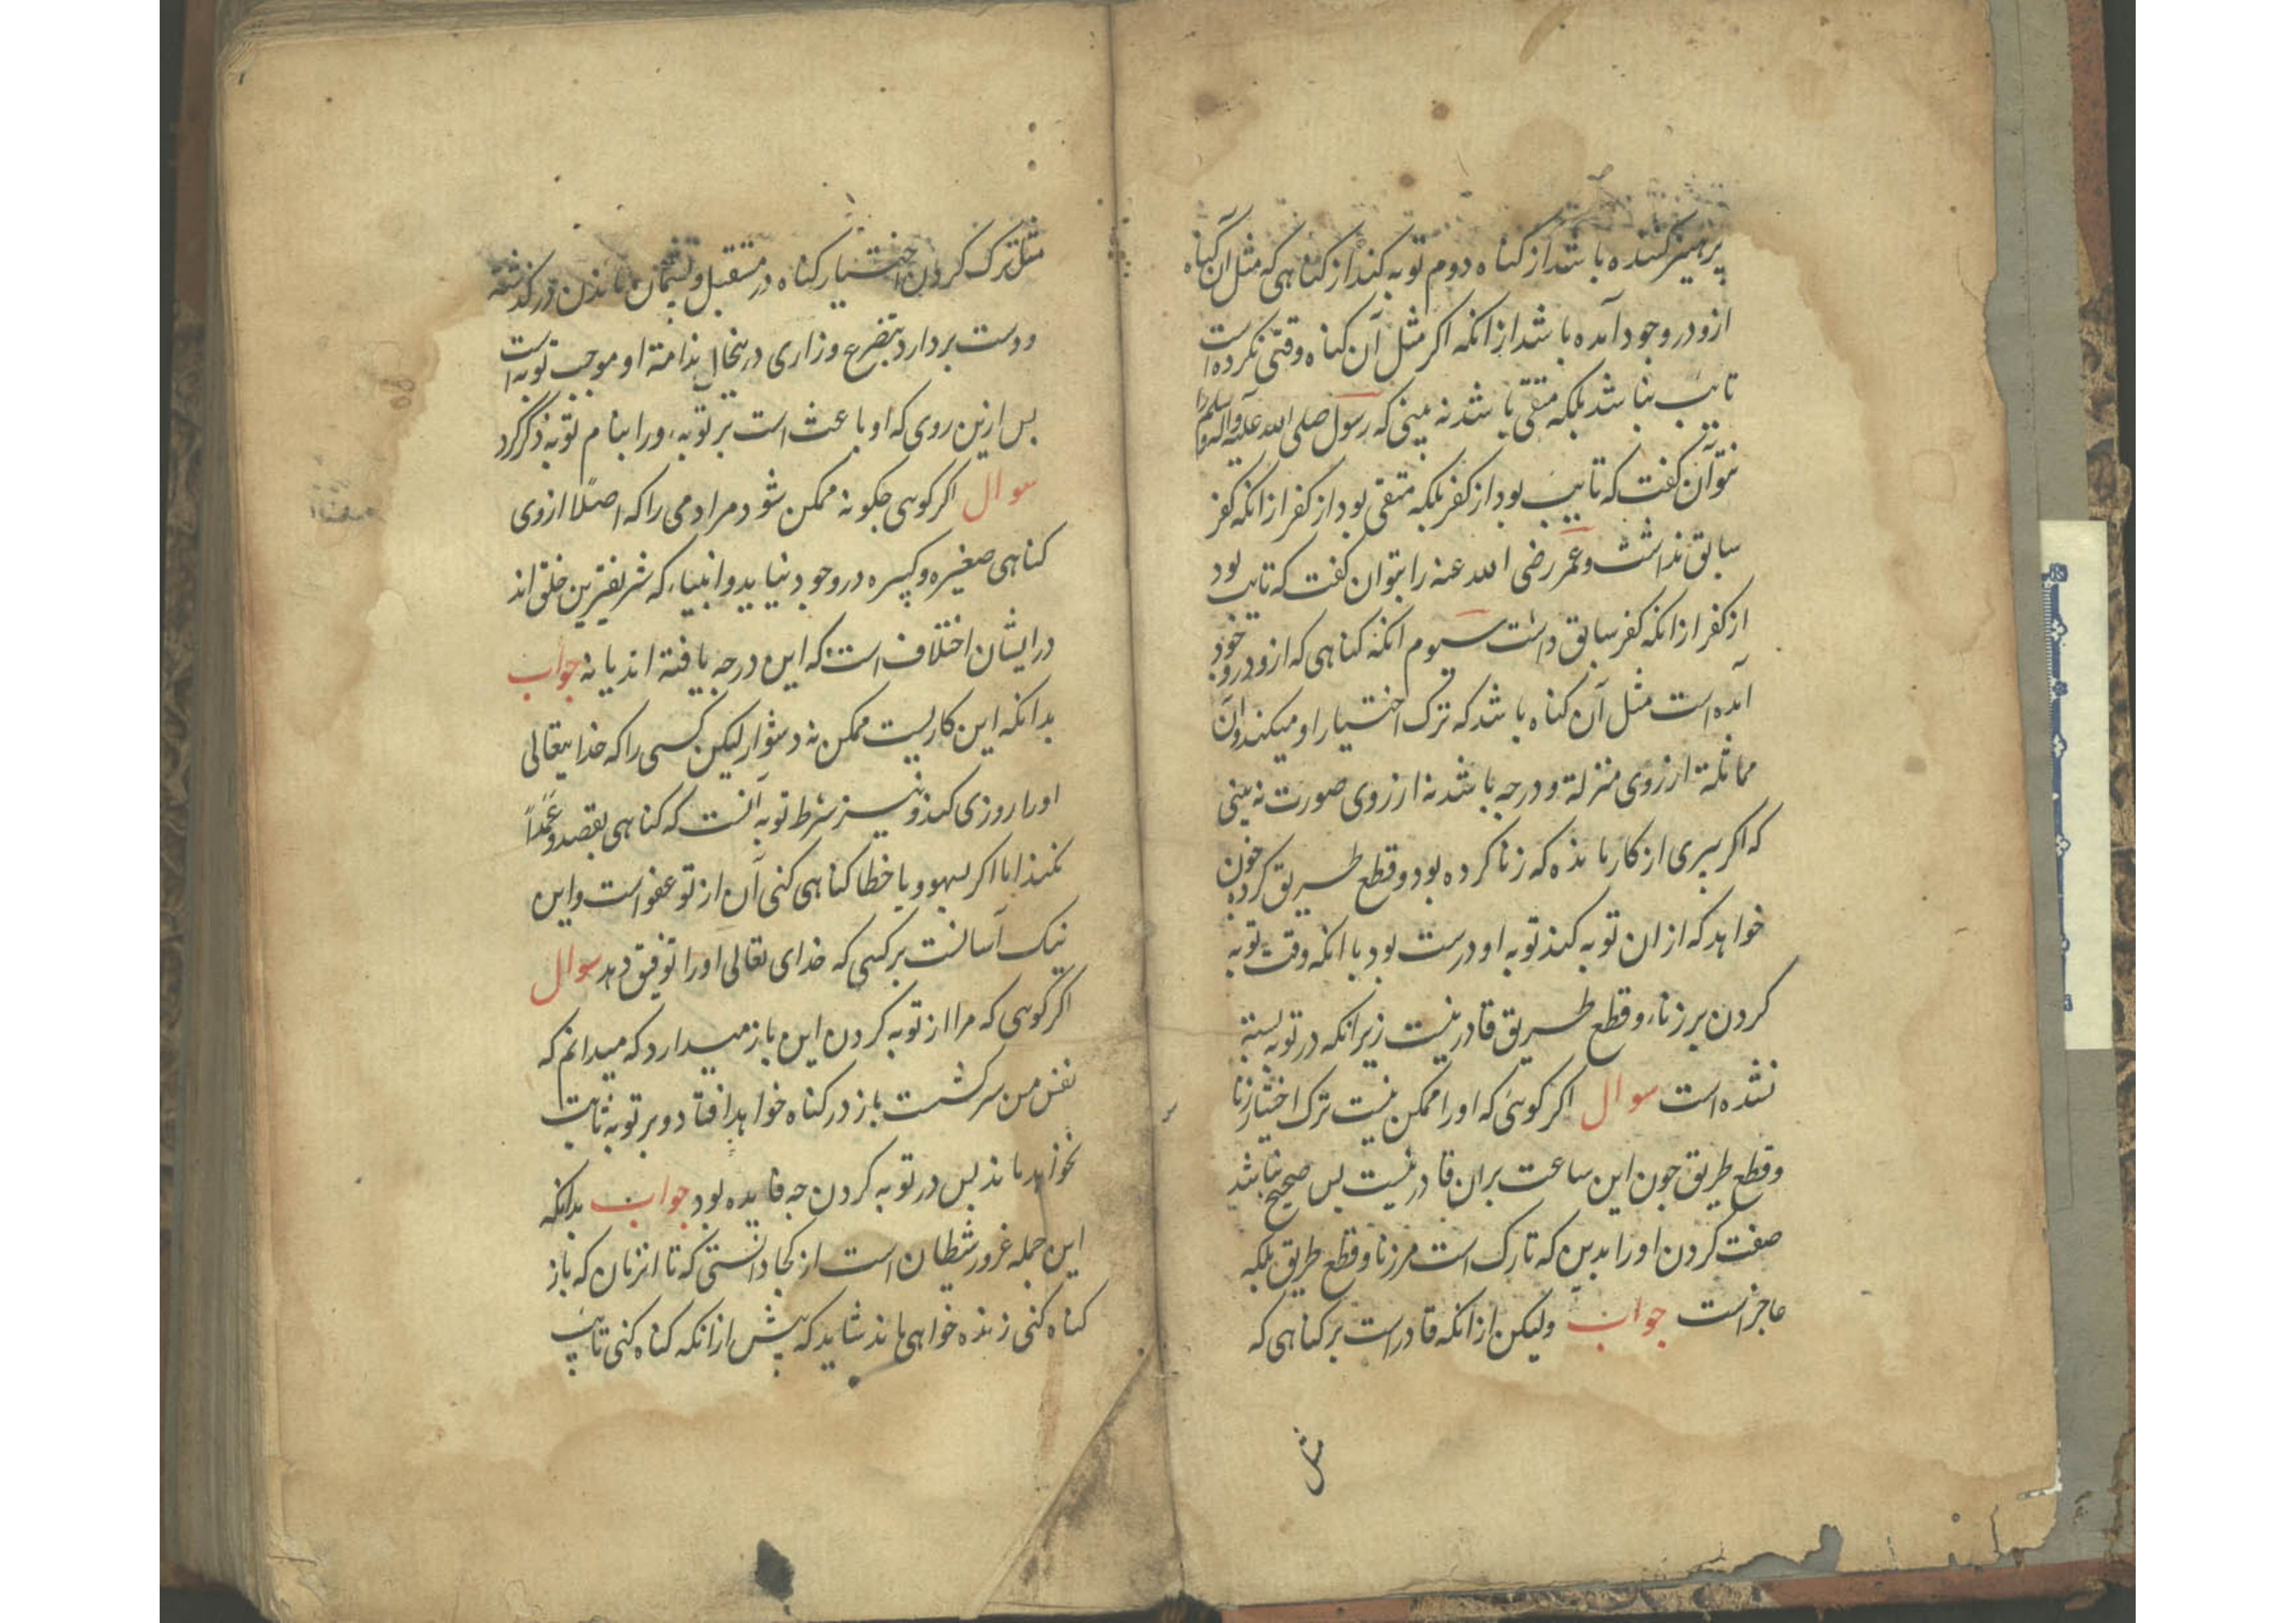 پرهیز کننده باشد از کناه دوم توبه کند از کناهی که مثل آن کناه
ازو در وجود آمده باشد از انکه اکر مثل آن کناه وقتی نکرده است
تایب نباشد بلکه متقی باشد نه بینی که رسول صلی الله علیه واله وسلم را
نتوان کفت که تایب بود از کفر بلکه متقی بود از کفر از انکه کفر
سابق نداشت و عمر رضی الله عنه را بتوان کفت که تایب بود
از کفر از انکه کفر سابق داشت سیوم انکه کناهی که ازو در وجود
آمده است مثل آن کناه باشد که ترک اختیار او میکند و آن
مماثلة از روی منزلة و درجه باشد نه از روی صورت نه بینی
که اکر پیری از کار مانده که زنا کرده بود و قطع طریق کرده چون
خواهد که از ان توبه کند توبه او درست بود با انکه وقت توبه
کردن بر زنا و قطع طریق قادر نیست زیرانکه در توبه بسته
نشده است سوال اکر کوئی که او را ممکن نیست ترک اختیار زنا
وقطع طریق جون این ساعت بران قادر نیست بس صحیح نباشد
صفت کردن او را بدین که تارک است مر زنا و قطع طریق بلکه
عاجز است جواب ولیکن از انکه قادر است بر کناهی که
مثل
مثل ترک کردن اختیار کناه در مستقبل و پشیمان ماندن در کذشته
ودست بردارد بتضرع وزاری درینحال ندامة او موجب توبه است
بس ازین روی که او باعث است بر توبه ورا بنام توبه ذکر کرد
سوال اکر کوئی جکونه ممکن شود مرادمی را که اصلا ازوی
کناهی صغیره وکبیره در وجود نیاید و انبیاء که شریفترین خلق اند
در ایشان اختلاف است که این درجه یافته اند یا نه جواب
بدانکه این کاریست ممکن نه دشوار لیکن کسی را که خدایتعالی
اورا روزی کند و نیز شرط توبه آنست که کناهی بقصد و عمداً
نکند اما اکر بسهو و یا خطا کناهی کنی آن از تو عفو است و این
نیک آسانست برکسی که خدای تعالی اورا توفیق دهد سوال
اکر کوئی که مرا از توبه کردن این باز میدارد که میدانم که
نفس من سرکشست باز در کناه خواهد افتاد و بر توبه ثابت
نخواهد ماند بس در توبه کردن جه فایده بود جواب بدانکه
این جمله غرور شیطان است از کجا دانستی که تا انزمان که باز
کناه کنی زنده خواهی ماند شاید که پیش از انکه کناه کنی تایب